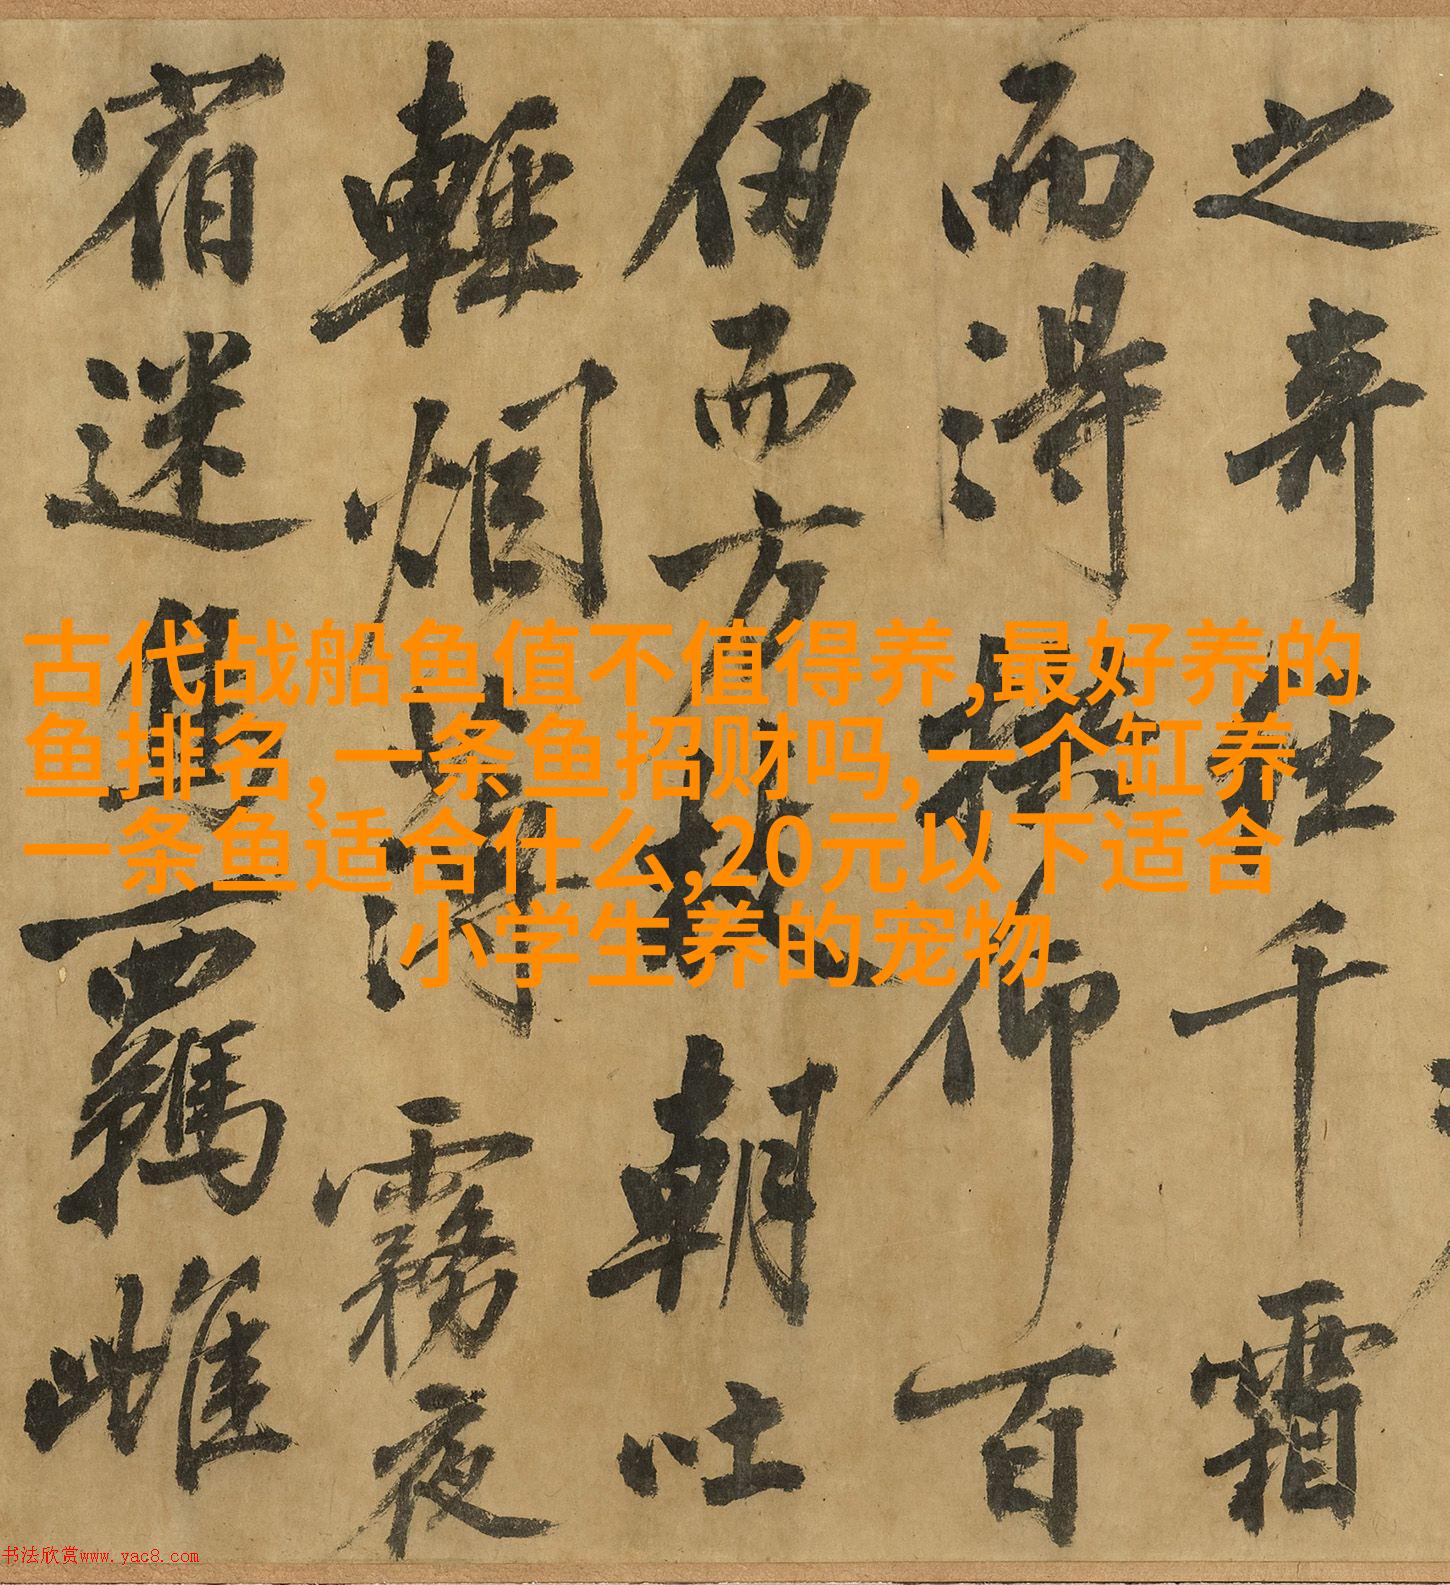 之奇千霜
而淂仰百
仞而方朝吐
輕烟薄霧夜
宿迷羈雌
古代战船鱼值不值得养,最好养的
鱼排名,一条鱼招财吗,一个缸养
一条鱼适合什么,20元以下适合
小学生养的宠物
书法欣赏www.yac8.com